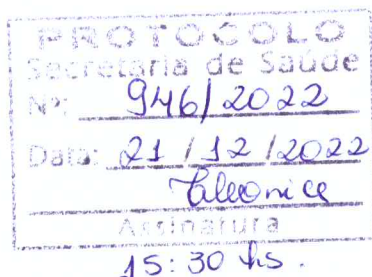 PROTOCOLO
Secretaria de Saúde
Nº: 946/2022
Data: 21/12/2022
Cleonice
Assinatura
15:30 hs.